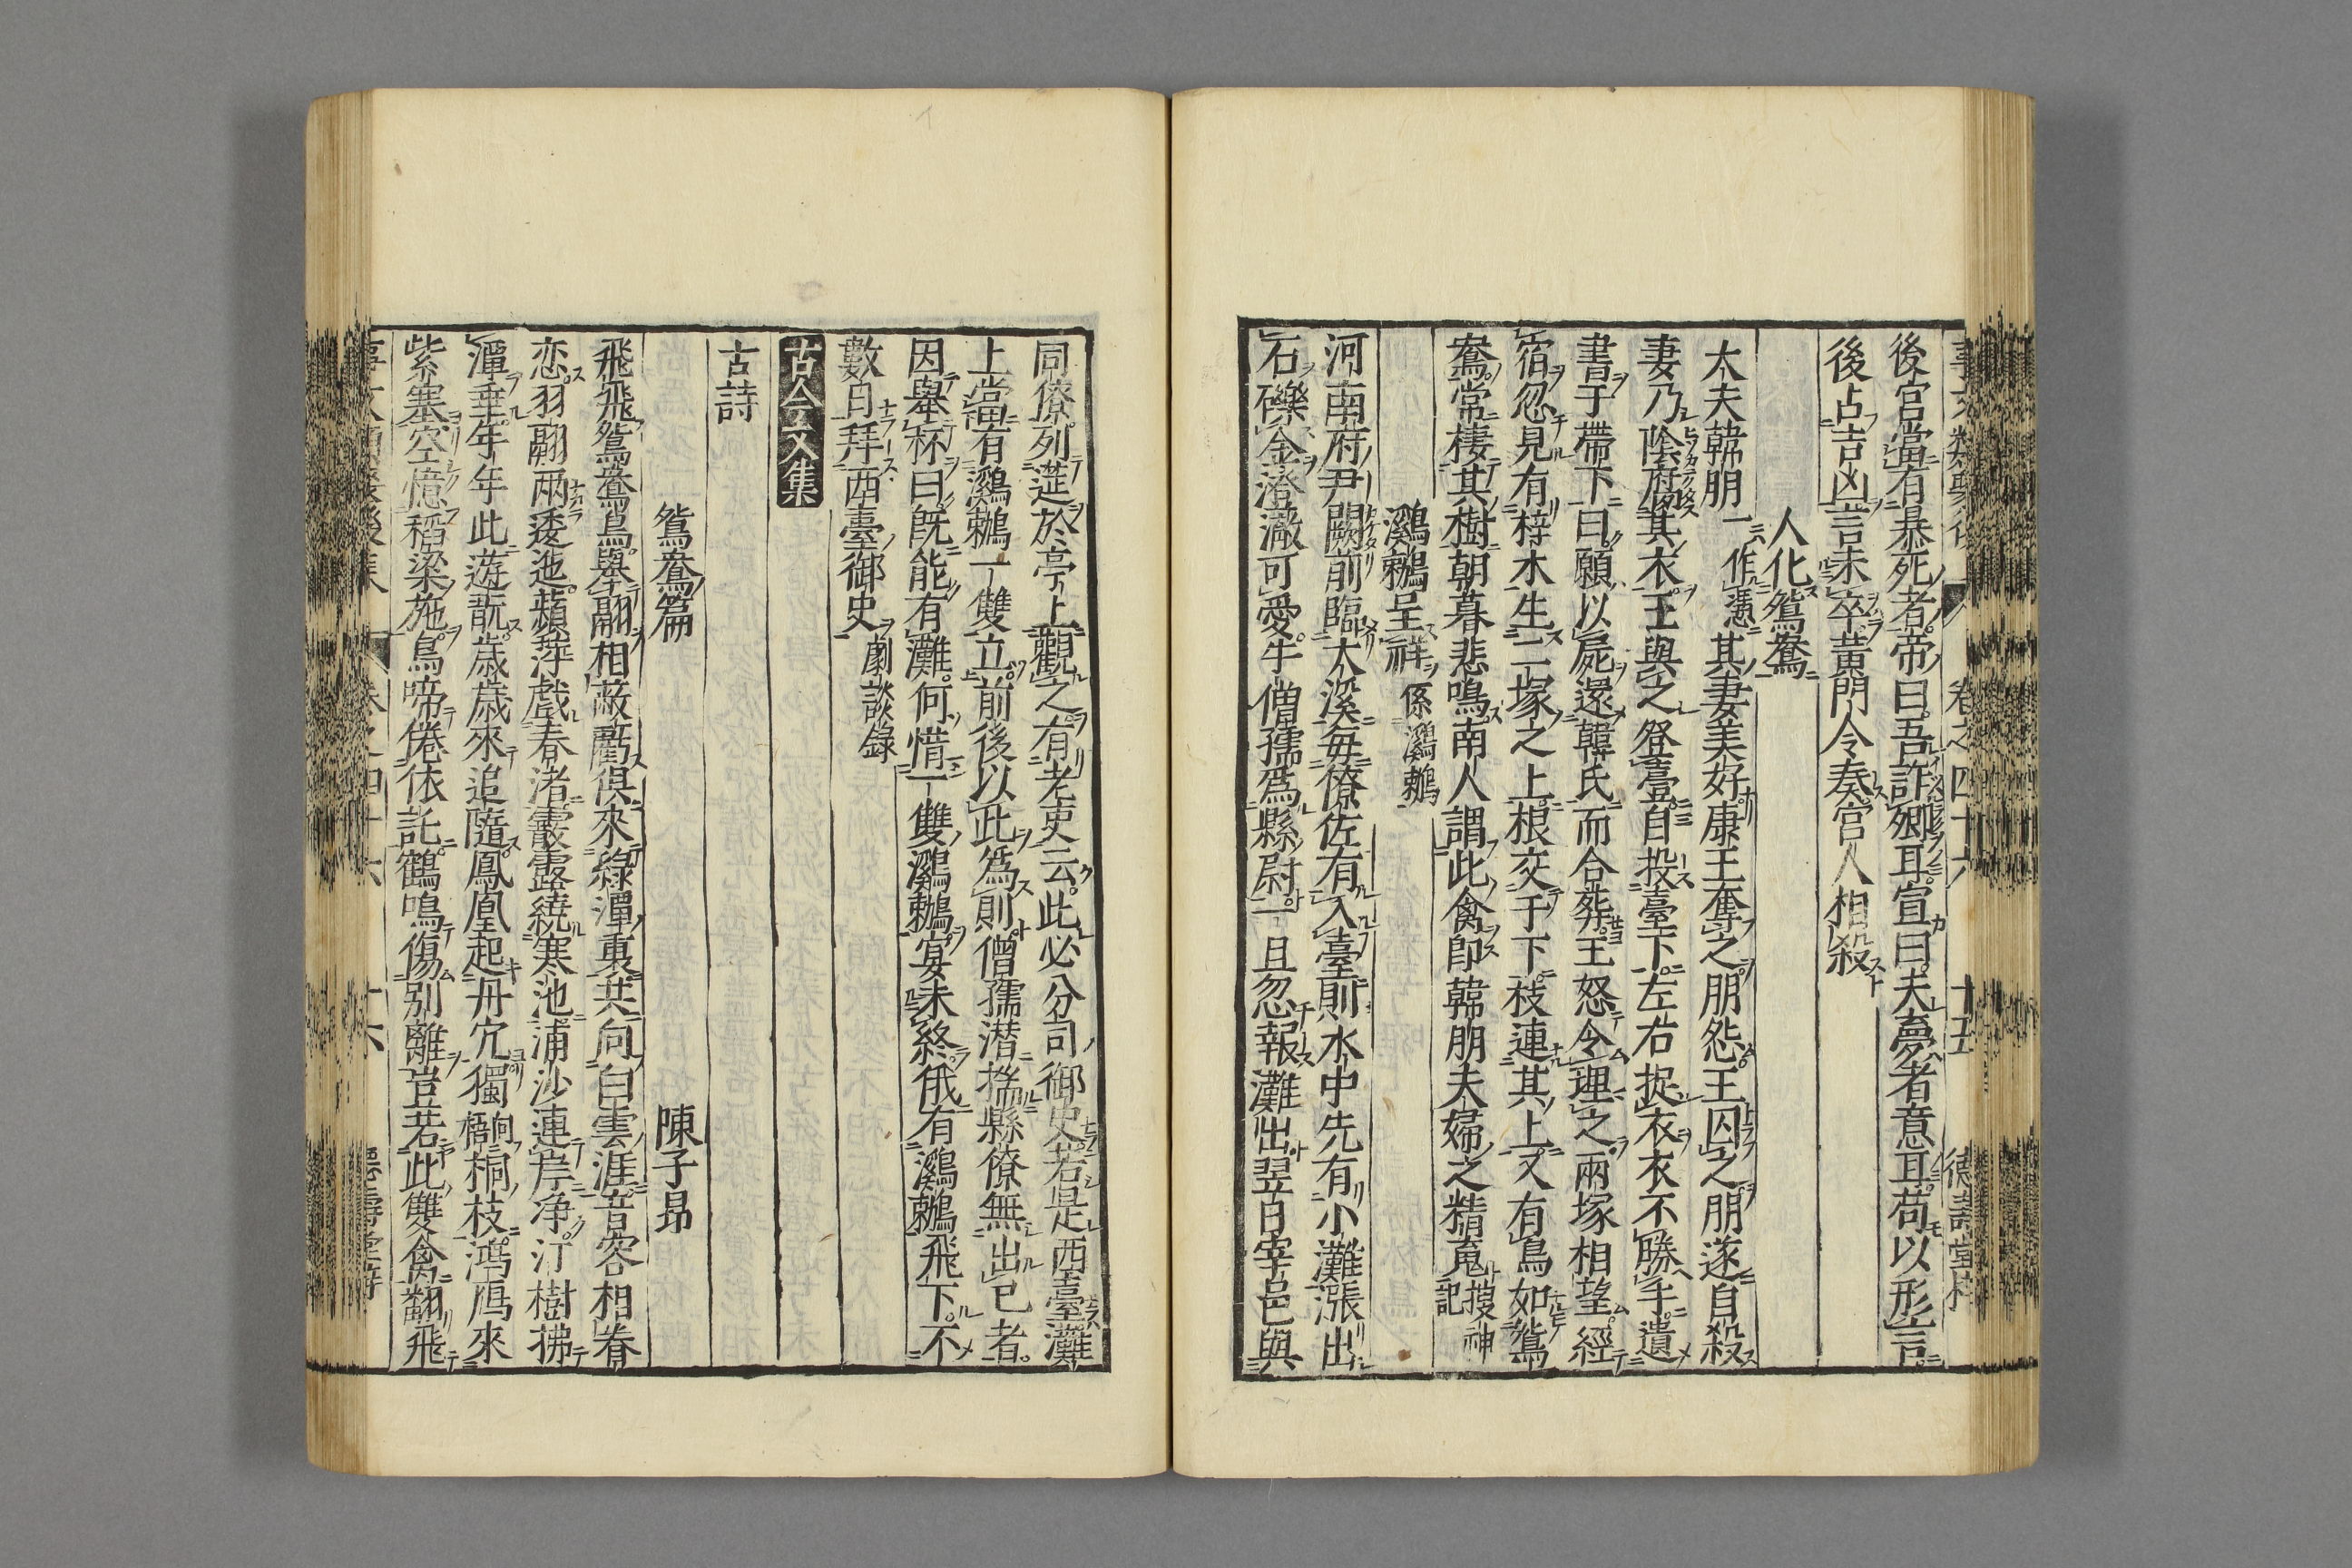 後宮當有暴死者帝曰吾詐卿耳宣曰夫夢者意耳苟以形言
後占吉凶言未卒黄門令奏宮人相殺
人化鴛鴦
大夫韓朋一作憑其妻美好康王奪之朋怨王囚之朋遂自殺
妻乃陰腐其衣王與之登臺自投臺下左右捉衣衣不勝手遺
書于帶下曰願以屍還韓氏而合葬王怒令埋之兩塚相望經
宿忽見有梓木生二塚之上根交于下枝連其上又有鳥如鴛
鴦常棲其樹朝暮悲鳴南人謂此禽卽韓朋夫婦之精䰟搜神記
鸂鶒呈祥係鸂鶒
河南府尹闕前臨大溪每僚佐有入臺則水中先有小灘漲出
石礫金澄澈可愛牛僧孺爲縣尉一旦忽報灘出翌日宰邑與
同僚列莚於亭上觀之有老吏云此必分司御史若是西臺灘
上當有鸂鶒一雙立前後以此爲則僧孺潜揣縣僚無出已者
因舉杯曰既能有灘何惜一雙鸂鶒宴未終俄有鸂鶒飛下不
數日拜西臺御史劇談錄
古今文集
古詩
鴛鴦篇 陳子昻
飛飛鴛鴦鳥舉翮相蔽虧俱來綠潭裏共向白雲涯音容相眷
恋羽翮兩逶迤蘋萍戲春渚霰露繞寒池浦沙連岸净汀樹拂
潭垂年年此遊翫歲歲來追隨鳳凰起丹穴獨向梧桐枝鴻鴈來
紫塞空憶稻粱施鳥啼倦依託鶴鳴傷别離豈若此雙禽翻飛
卷之四十六 十五 德壽堂梓